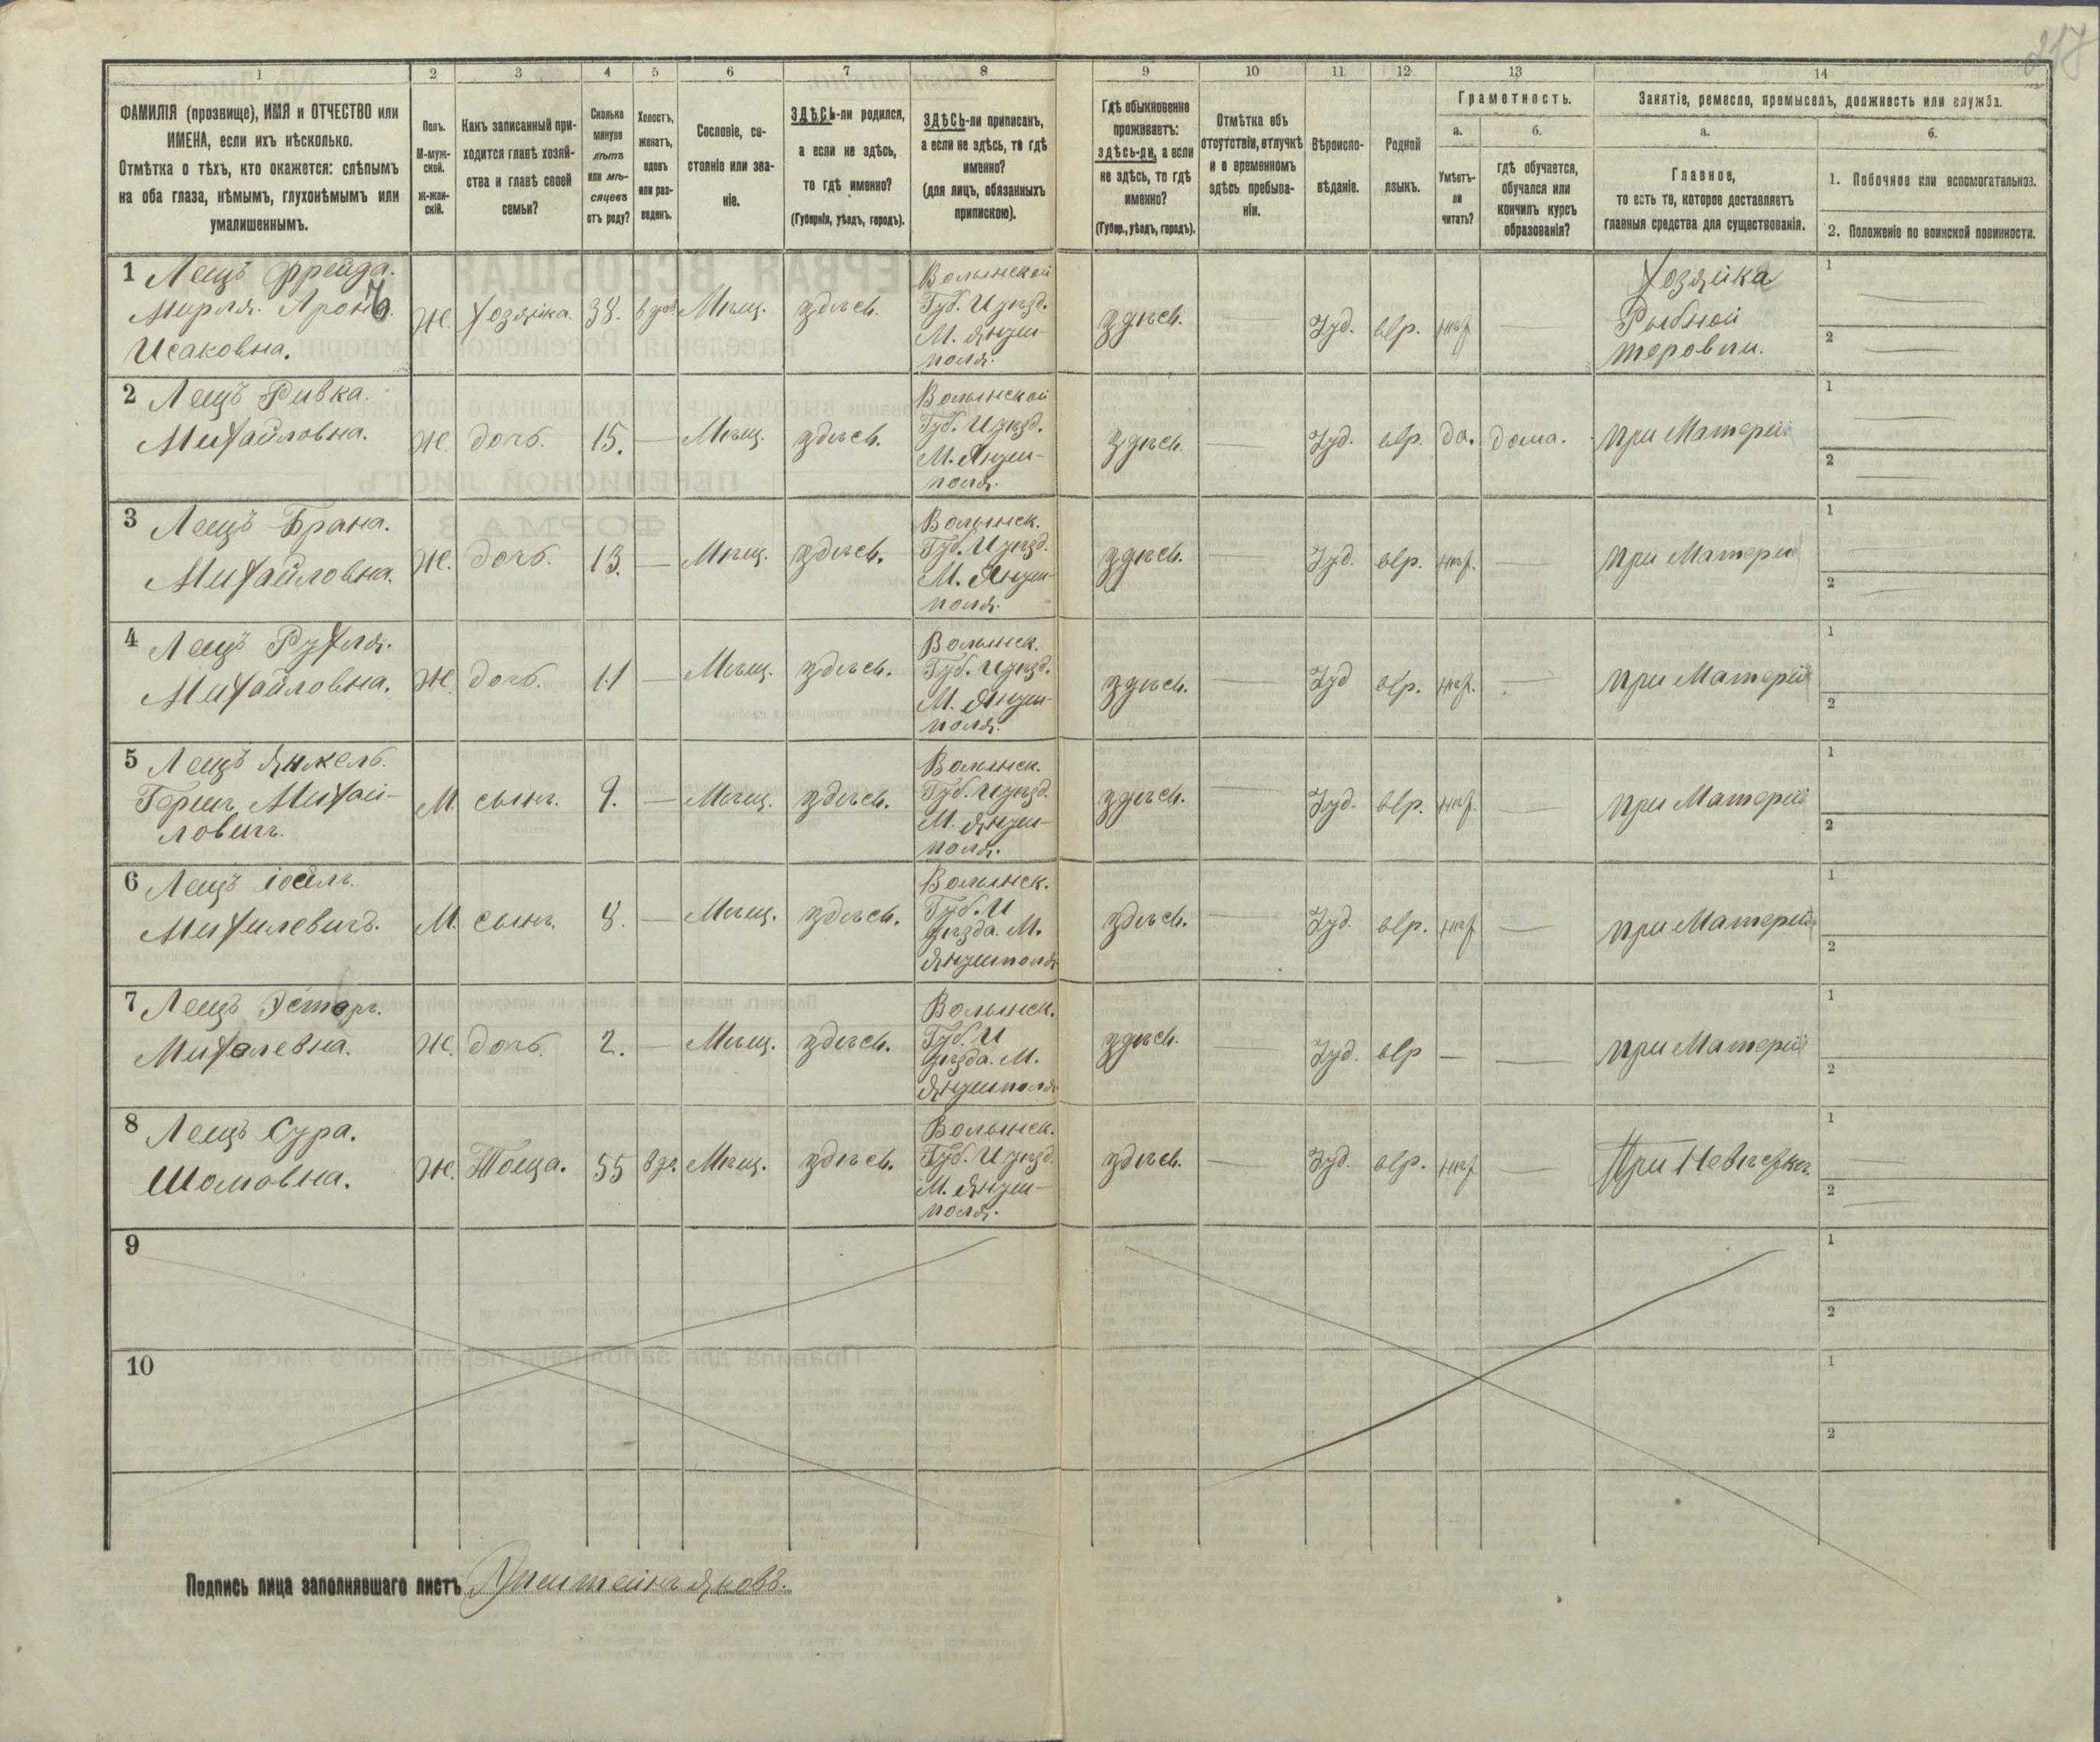 217
1 2 3 4 5 6 7 8 9 10 11 12 13 14
ФАМИЛІЯ (прозвище), ИМЯ и ОТЧЕСТВО или
ИМЕНА, если ихъ нѣсколько.
Отмѣтка о тѣхъ, кто окажется: слѣпымъ
на оба глаза, нѣмымъ, глухонѣмымъ или
умалишеннымъ.
Полъ.
М-муж-
ской.
Ж-жен-
скій.
Какъ записанный при-
ходится главѣ хозяй-
ства и главѣ своей
семьи?
Сколько
минуло
лѣтъ
или мѣ-
сяцевъ
отъ роду?
Холостъ,
женатъ,
вдовъ
или раз-
веденъ.
Сословіе, со-
стояніе или зва-
ніе.
ЗДѢСЬ-ли родился,
а если не здѣсь,
то гдѣ именно?
(Губернія, уѣздъ, городъ).
ЗДѢСЬ-ли приписанъ,
а если не здѣсь, то гдѣ
именно?
(для лицъ, обязанныхъ
припискою).
Гдѣ обыкновенно
проживаетъ:
здѣсь-ли, а если
не здѣсь, то гдѣ
именно?
(Губер., уѣздъ, городъ).
Отмѣтка объ
отсутствіи, отлучкѣ
и о временномъ
здѣсь пребыва-
ніи.
Вѣроиспо-
вѣданіе.
Родной
языкъ.
Грамотность.
а.
Умѣетъ-
ли
читать?
б.
гдѣ обучается,
обучался или
кончилъ курсъ
образованія?
Занятіе, ремесло, промыселъ, должность или служба.
а.
Главное,
то есть то, которое доставляетъ
главныя средства для существованія.
б.
1. Побочное или вспомогательное.
2. Положеніе по воинской повинности.
1 Лещъ Фрейда.
Мирля.
Исаковна.
Ж. Хозяйка. 38. вдов. Мѣщ. здѣсь.
Волынской
Губ. И уѣзд.
М. Януш-
поля.
здѣсь. — Іуд. евр. нѣт —
Хозяйка
Рыбной
торовли.
1 —
2 —
2 Лещъ Ривка.
Михайловна.
Ж. дочь. 15. — Мѣщ. здѣсь.
Волынской
Губ. И уѣзд.
М. Януш-
поля.
здѣсь — Іуд. евр. да. дома. при Матерѣи
1 —
2 —
3 Лещъ Брана.
Михайловна.
Ж. дочь. 13. — Мѣщ. здѣсь.
Волынск.
Губ. И уѣзд.
М. Януш-
поля.
здѣсь. — Іуд. евр. нѣт. — при Матери
1 —
2 —
4 Лещъ Рухля.
Михайловна.
Ж. дочь. 11 — Мѣщ. здѣсь.
Волынск.
Губ. И уѣзд.
М. Януш-
поля.
здѣсь. — Іуд евр. нѣт. — при Матерѣи
1
2
5 Лещъ Янкель.
Герш Михай-
ловичъ.
М. сынъ. 9. — Мѣщ. здѣсь.
Волынск.
Губ. И уѣзд.
М. Януш-
поля.
здѣсь. — Іуд. евр. нѣт. — при Матерѣи
1
2
6 Лещъ Іойлъ.
Михилевичъ.
М. сынъ. 8. — Мѣщ. здѣсь.
Волынск.
Губ. И
уѣзда. М.
Янушполя
здѣсь. — Іуд. евр. нѣт — при Матерѣи
1
2
7 Лещъ Эстеръ.
Михелевна.
Ж. дочь. 2. — Мѣщ. здѣсь.
Волынск.
Губ. И
уѣзда. М.
Янушполя
здѣсь. — Іуд. евр — — при Матерѣи
1
2
8 Лещъ Сура.
Шомовна.
Ж. Тоща. 55 вдо. Мѣщ. здѣсь.
Волынск.
Губ. И уѣзд.
М. Януш-
поля.
здѣсь. — Іуд. евр. нѣт —
1 —
2 —
9
1
2
10
1
2
Подпись лица заполнявшаго листъ